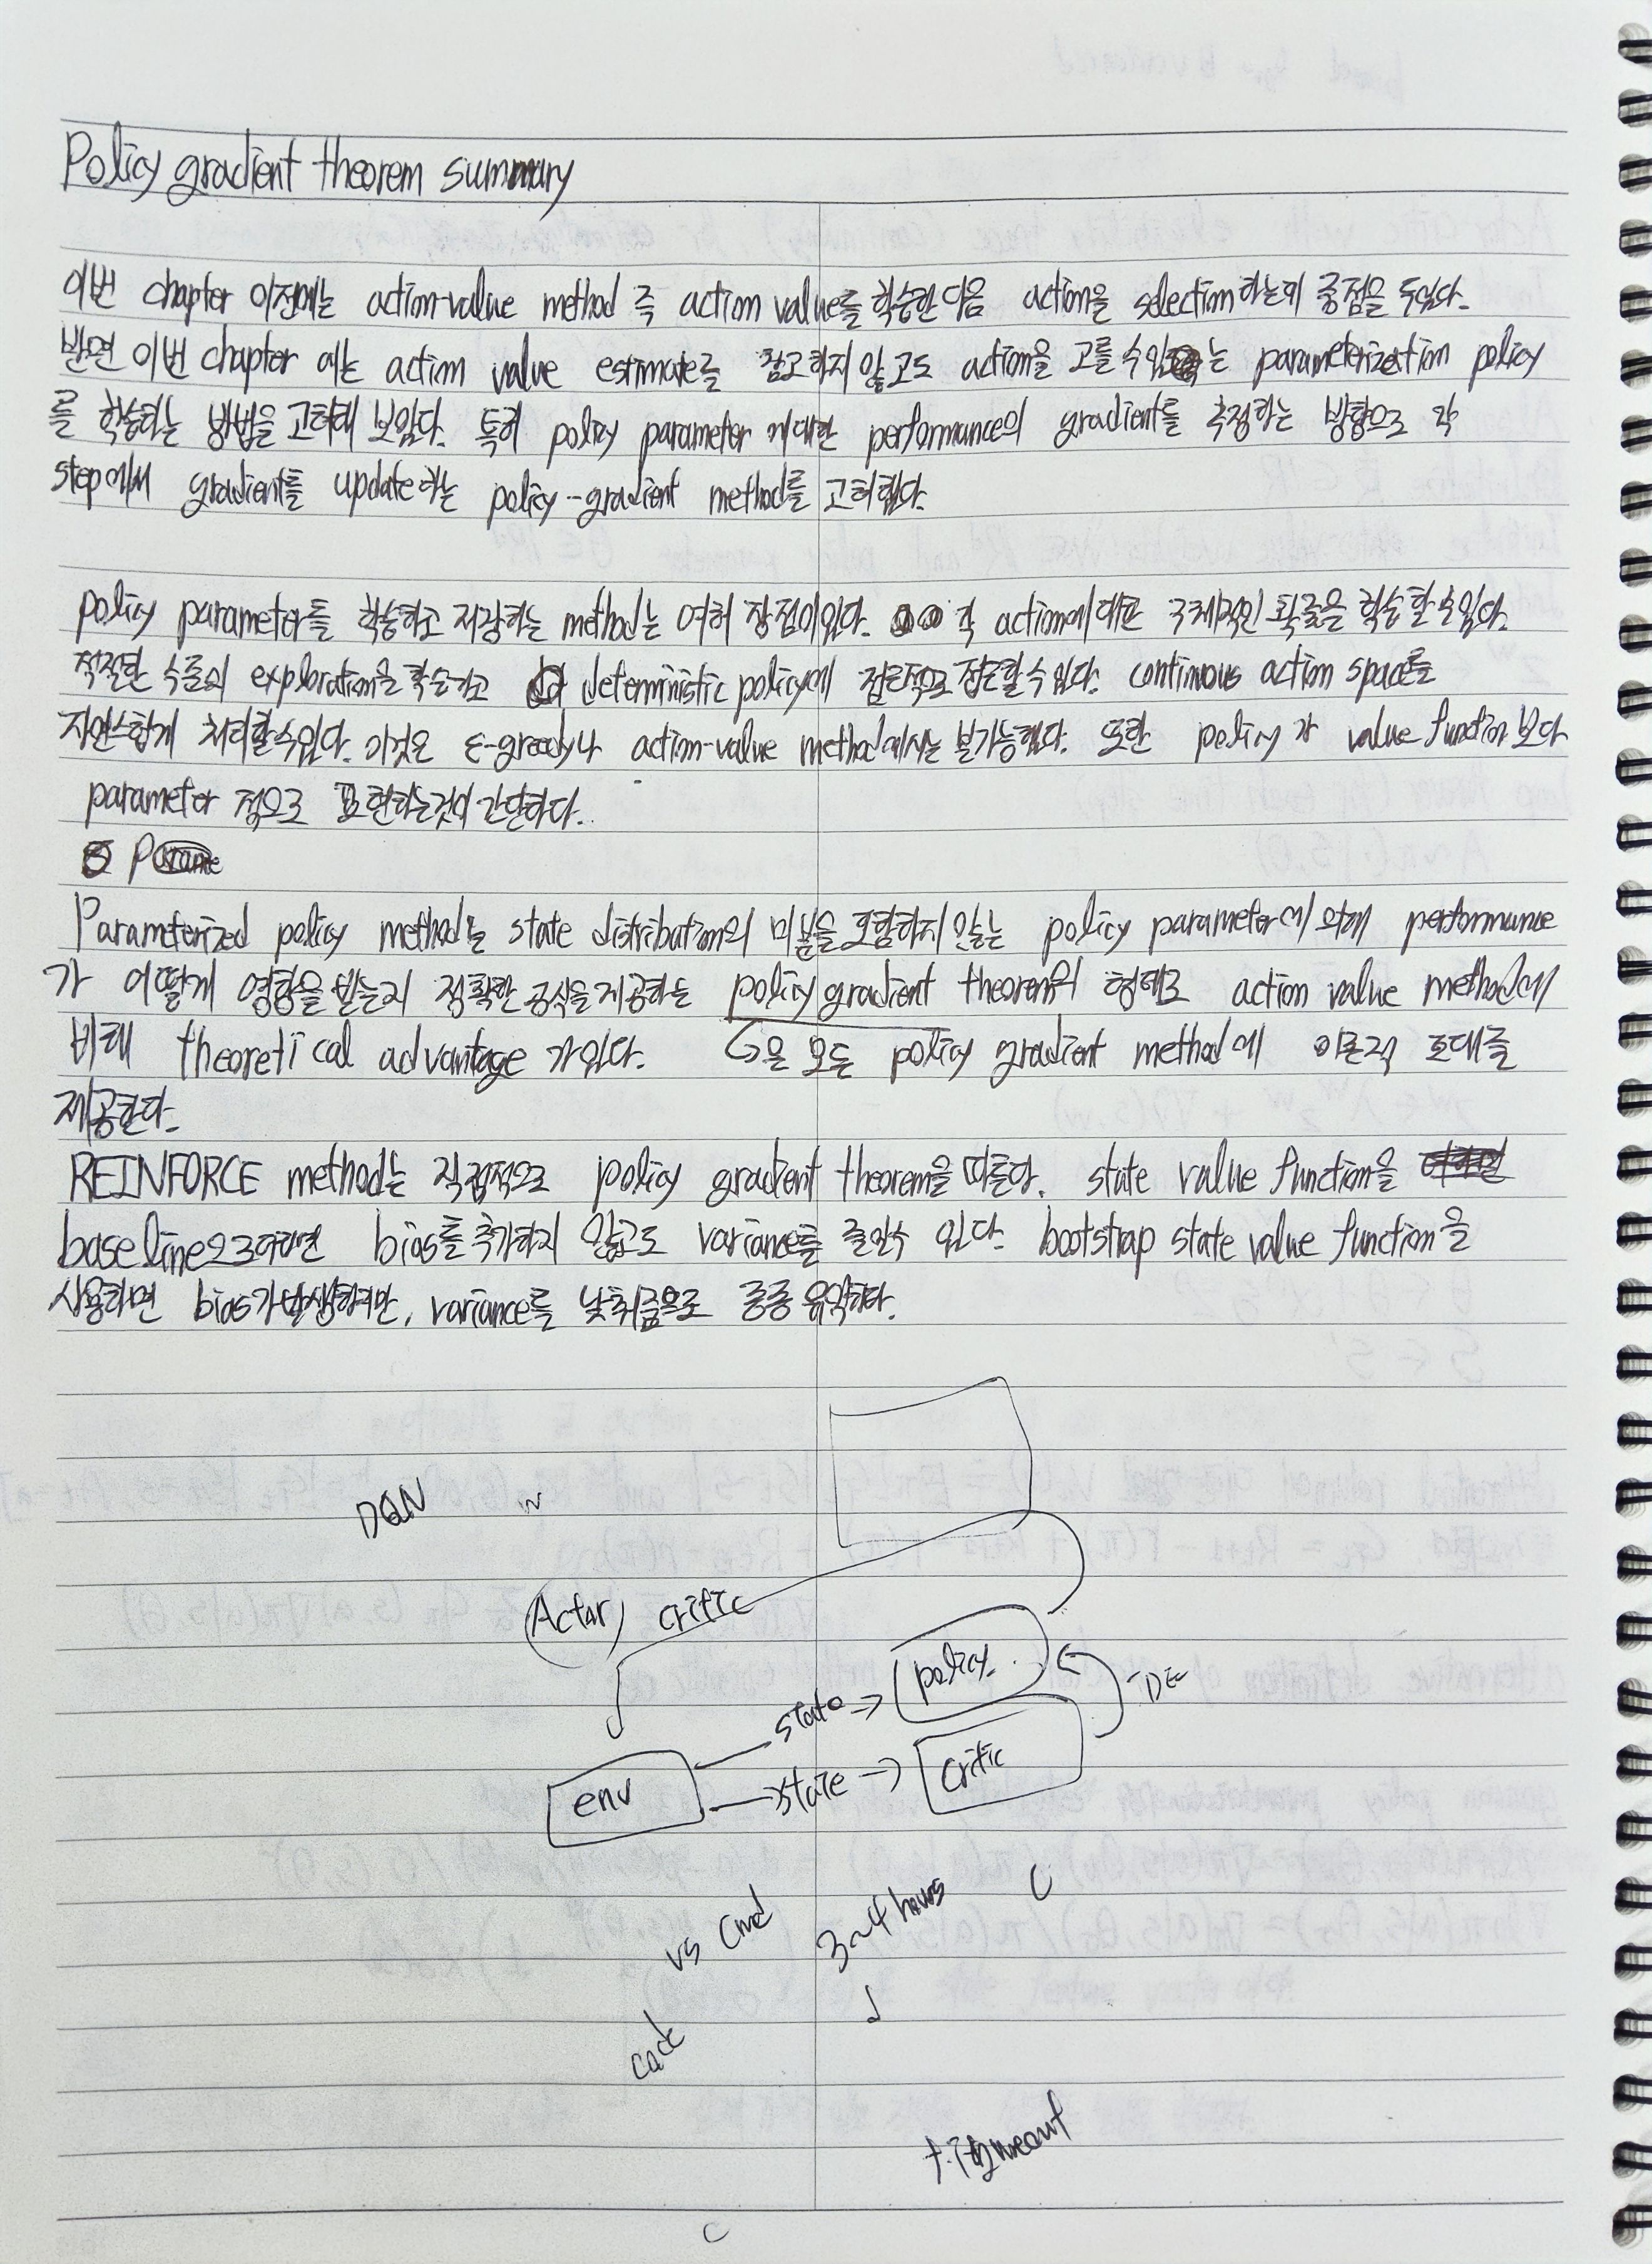 Policy gradient theorem summary
이번 chapter 이전에는 action-value method 즉 action value를 학습한 다음 action을 selection하는데 중점을 두었다.
반면 이번 chapter 에는 action value estimate를 참고하지 않고도 action을 고를 수 있는 parameterization policy
를 학습하는 방법을 고려해 보았다. 특히 policy parameter 에대한 performance의 gradient를 추정하는 방향으로 각
step에서 gradient를 update하는 policy-gradient method를 고려했다.
policy parameter를 학습하고 저장하는 method는 여러 장점이있다. 각 action에대한 구체적인 확률을 학습할 수 있다.
적절한 수준의 exploration을 학습하고 deterministic policy에 점근적으로 접근할 수 있다. continuous action space를
자연스럽게 처리할 수 있다. 이것은 ε-greedy나 action-value method에서는 불가능했다. 또한 policy 가 value function 보다
parameter 적으로 표현하는것이 간단하다.
Parameterized policy method는 state distribution의 미분을 포함하지 않는 policy parameter에 의해 performance
가 어떻게 영향을 받는지 정확한 공식을 제공하는 policy gradient theorem의 형태로 action value method에
비해 theoretical advantage 가있다. ↳은 모든 policy gradient method에 이론적 토대를
제공한다.
REINFORCE method는 직접적으로 policy gradient theorem을 따른다. state value function을
baseline으로 bias를 추가하지 않고도 variance를 줄일수 있다. bootstrap state value function을
사용하면 bias가 발생하지만, variance를 낮춰줌으로 종종
DQN
Actor critic
policy
state →
env
state →
critic
vs Cmd
3~4 hours